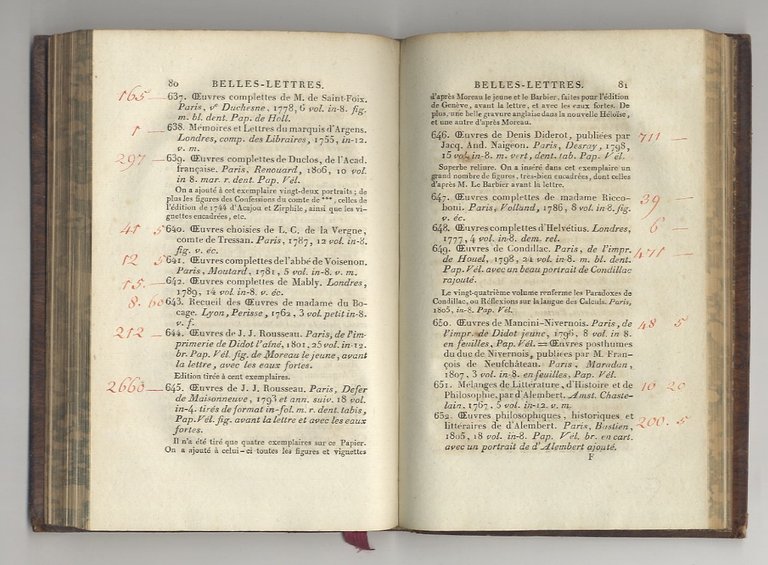 80 BELLES-LETTRES.
165 — 637. Œuvres complettes de M. de Saint-Foix.
Paris, ve Duchesne, 1778, 6 vol. in-8. fig.
m. bl. dent. Pap. de Holl.
1 — 638. Mémoires et Lettres du marquis d'Argens.
Londres, comp. des Libraires, 1755, in-12.
v. m.
297 — 639. Œuvres complettes de Duclos, de l'Acad.
française. Paris, Renouard, 1806, 10 vol.
in 8. mar. r. dent. Pap. Vél.
On a ajouté à cet exemplaire vingt-deux portraits; de
plus les figures des Confessions du comte de ***, celles de
l'édition de 1744 d'Acajou et Zirphile, ainsi que les vi-
gnettes encadrées, etc.
41 5 640. Œuvres choisies de L. C. de la Vergne,
comte de Tressan. Paris, 1787, 12 vol. in-8.
fig. v. éc.
12 5 641. Œuvres complettes de l'abbé de Voisenon.
Paris, Moutard, 1781, 5 vol. in-8. v. m.
15. — 642. Œuvres complettes de Mably. Londres,
1789, 14 vol. in-8. v. éc.
8. 60 643. Recueil des Œuvres de madame du Bo-
cage. Lyon, Perisse, 1762, 3 vol. petit in-8.
v. f.
212 — 644. Œuvres de J. J. Rousseau. Paris, de l'im-
primerie de Didot l'aîné, 1801, 25 vol. in-12.
br. Pap. Vél. fig. de Moreau le jeune, avant
la lettre, avec les eaux fortes.
Edition tirée à cent exemplaires.
2660 — 645. Œuvres de J. J. Rousseau. Paris, Defer
de Maisonneuve, 1793 et ann. suiv. 18 vol.
in-4. tirés de format in-fol. m. r. dent. tabis,
Pap. Vél. fig. avant la lettre et avec les eaux
fortes.
Il n'a été tiré que quatre exemplaires sur ce Papier.
On a ajouté à celui-ci toutes les figures et vignettes
BELLES-LETTRES. 81
d'après Moreau le jeune et le Barbier, faites pour l'édition
de Genève, avant la lettre, et avec les eaux fortes. De
plus, une belle gravure anglaise dans la nouvelle Héloïse,
et une autre d'après Moreau.
646. Œuvres de Denis Diderot, publiées par 711 —
Jacq. And. Naigeon. Paris, Desray, 1798,
15 vol. in-8. m. vert, dent. tab. Pap. Vél.
Superbe reliure. On a inséré dans cet exemplaire un
grand nombre de figures, très-bien encadrées, dont celles
d'après M. Le Barbier avant la lettre.
647. Œuvres complettes de madame Ricco- 39 —
boni. Paris, Volland, 1786, 8 vol. in 8. fig.
v. éc.
648. Œuvres complettes d'Helvétius. Londres, 6 —
1777, 4 vol. in-8. dem. rel.
649. Œuvres de Condillac. Paris, de l'impr. 471 —
de Houel, 1798, 24 vol. in-8. m. bl. dent.
Pap. Vél. avec un beau portrait de Condillac
rajouté.
Le vingt-quatrième volume renferme les Paradoxes de
Condillac, ou Réflexions sur la langue des Calculs. Paris,
1805, in-8. Pap. Vél.
650. Œuvres de Mancini-Nivernois. Paris, de 48 5
l'impr. de Didot jeune, 1796, 8 vol. in 8.
en feuilles, Pap. Vél. = Œuvres posthumes
du duc de Nivernois, publiées par M. Fran-
çois de Neufchâteau. Paris, Maradan,
1807, 3 vol. in-8. en feuilles, Pap. Vél.
651. Mélanges de Littérature, d'Histoire et de 16 20
Philosophie, par d'Alembert. Amst. Chaste-
lain, 1767, 5 vol. in-12. v. m.
652. Œuvres philosophiques, historiques et 200. 5
litteraires de d'Alembert. Paris, Bastien,
1805, 18 vol. in-8. Pap. Vél. br. en cart.
avec un portrait de d'Alembert ajouté.
F